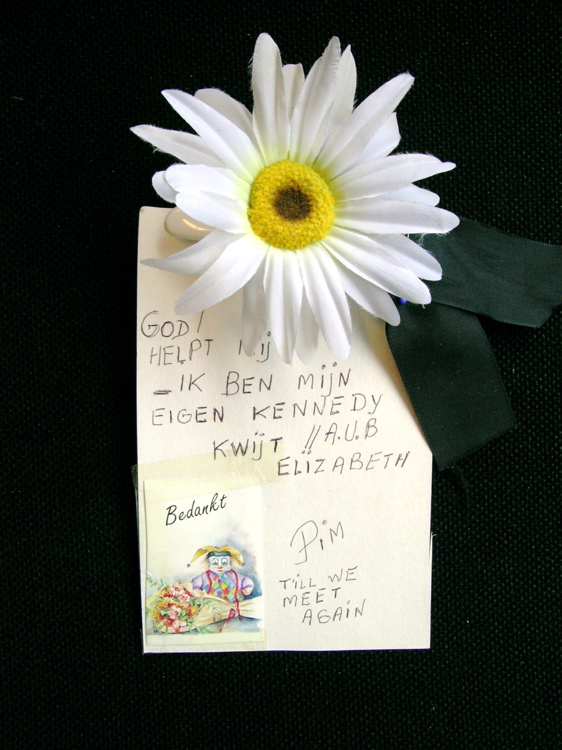 GOD!
HELPT Mij
_IK BEN MijN
EIGEN KENNEDY
KWijT !! A.U.B
ELIZABETH
Bedankt
PiM
TiLL WE
MEET
AGAiN